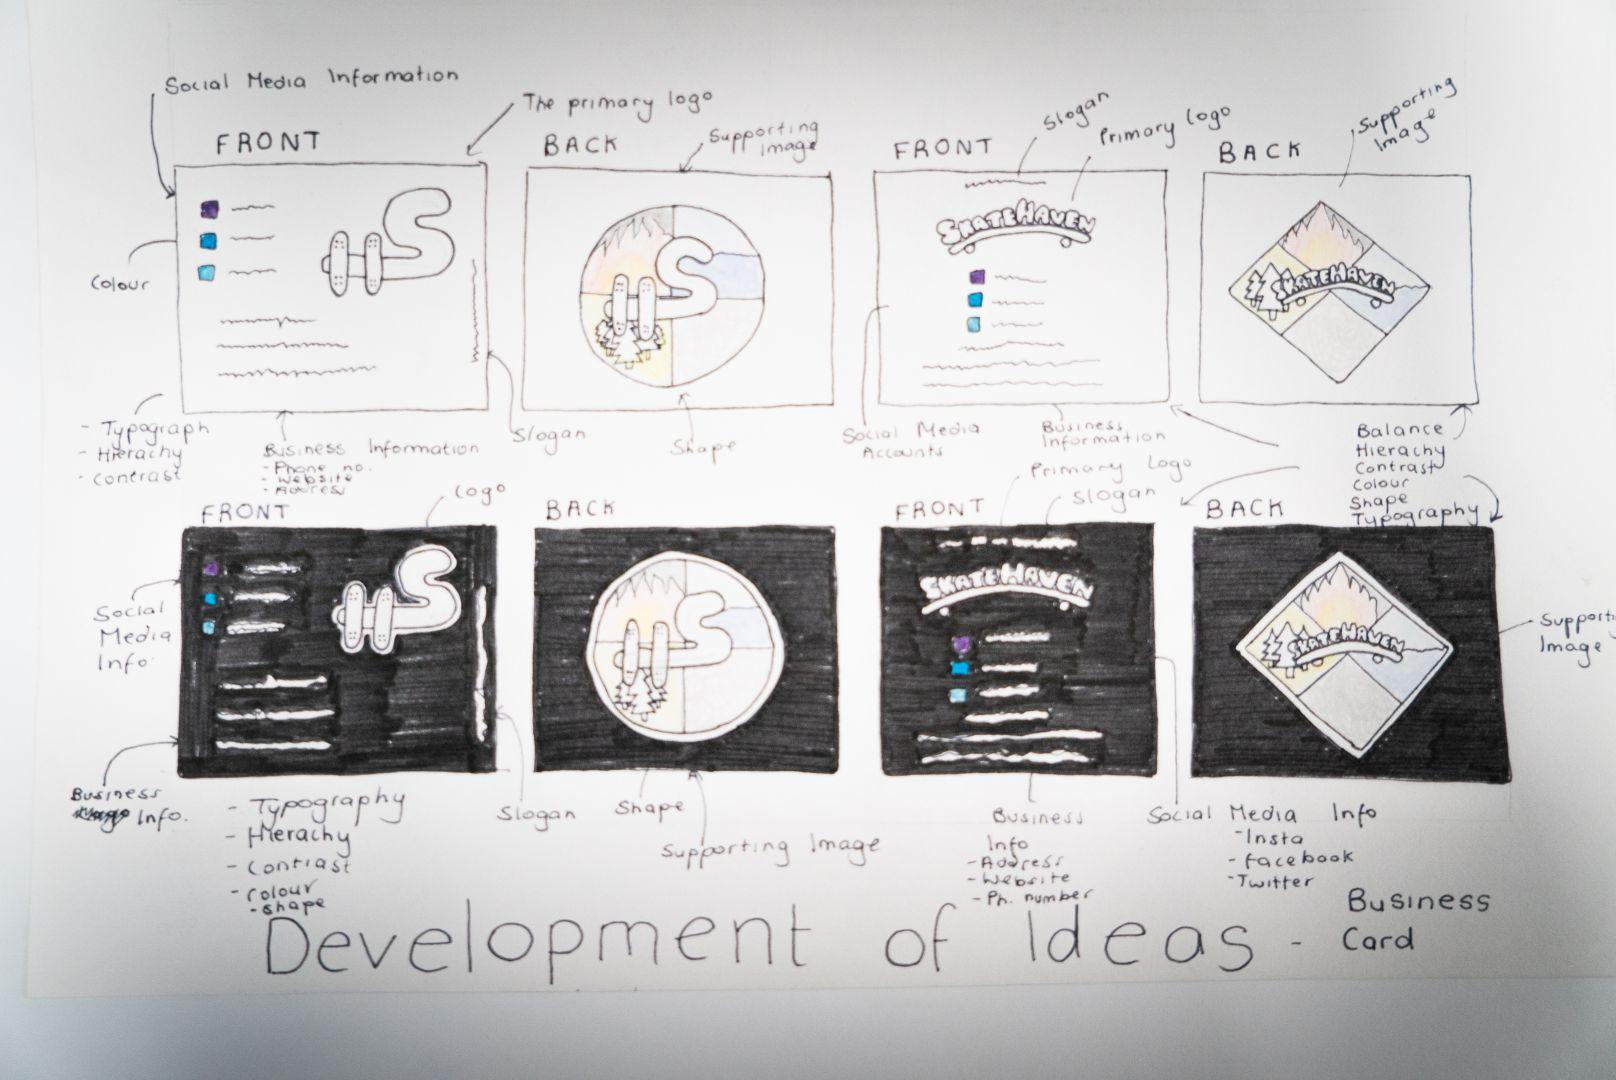 Social Media Information
The primary logo
FRONT
BACK
Supporting
Image
Slogan
Primary Logo
FRONT
BACK
Supporting
Image
Colour
S
H
S
H
SKATEHAVEN
SKATEHAVEN
- Typograph
- Hierachy
- Contrast
Business Information
- Phone no.
- Website
- Address
Slogan
Shape
Social Media
Accounts
Business
Information
Balance
Hierachy
Contrast
Colour
Shape
Typography
Logo
Primary Logo
Slogan
FRONT
BACK
FRONT
BACK
Social
Media
Info
S
H
S
H
SKATEHAVEN
SKATEHAVEN
Supporti
Image
Business
Info.
- Typography
- Hierachy
- Contrast
- Colour
- Shape
Slogan
Shape
Supporting Image
Business
Info
- Address
- Website
- Ph. number
Social Media Info
- Insta
- Facebook
- Twitter
Development of Ideas - Business
Card